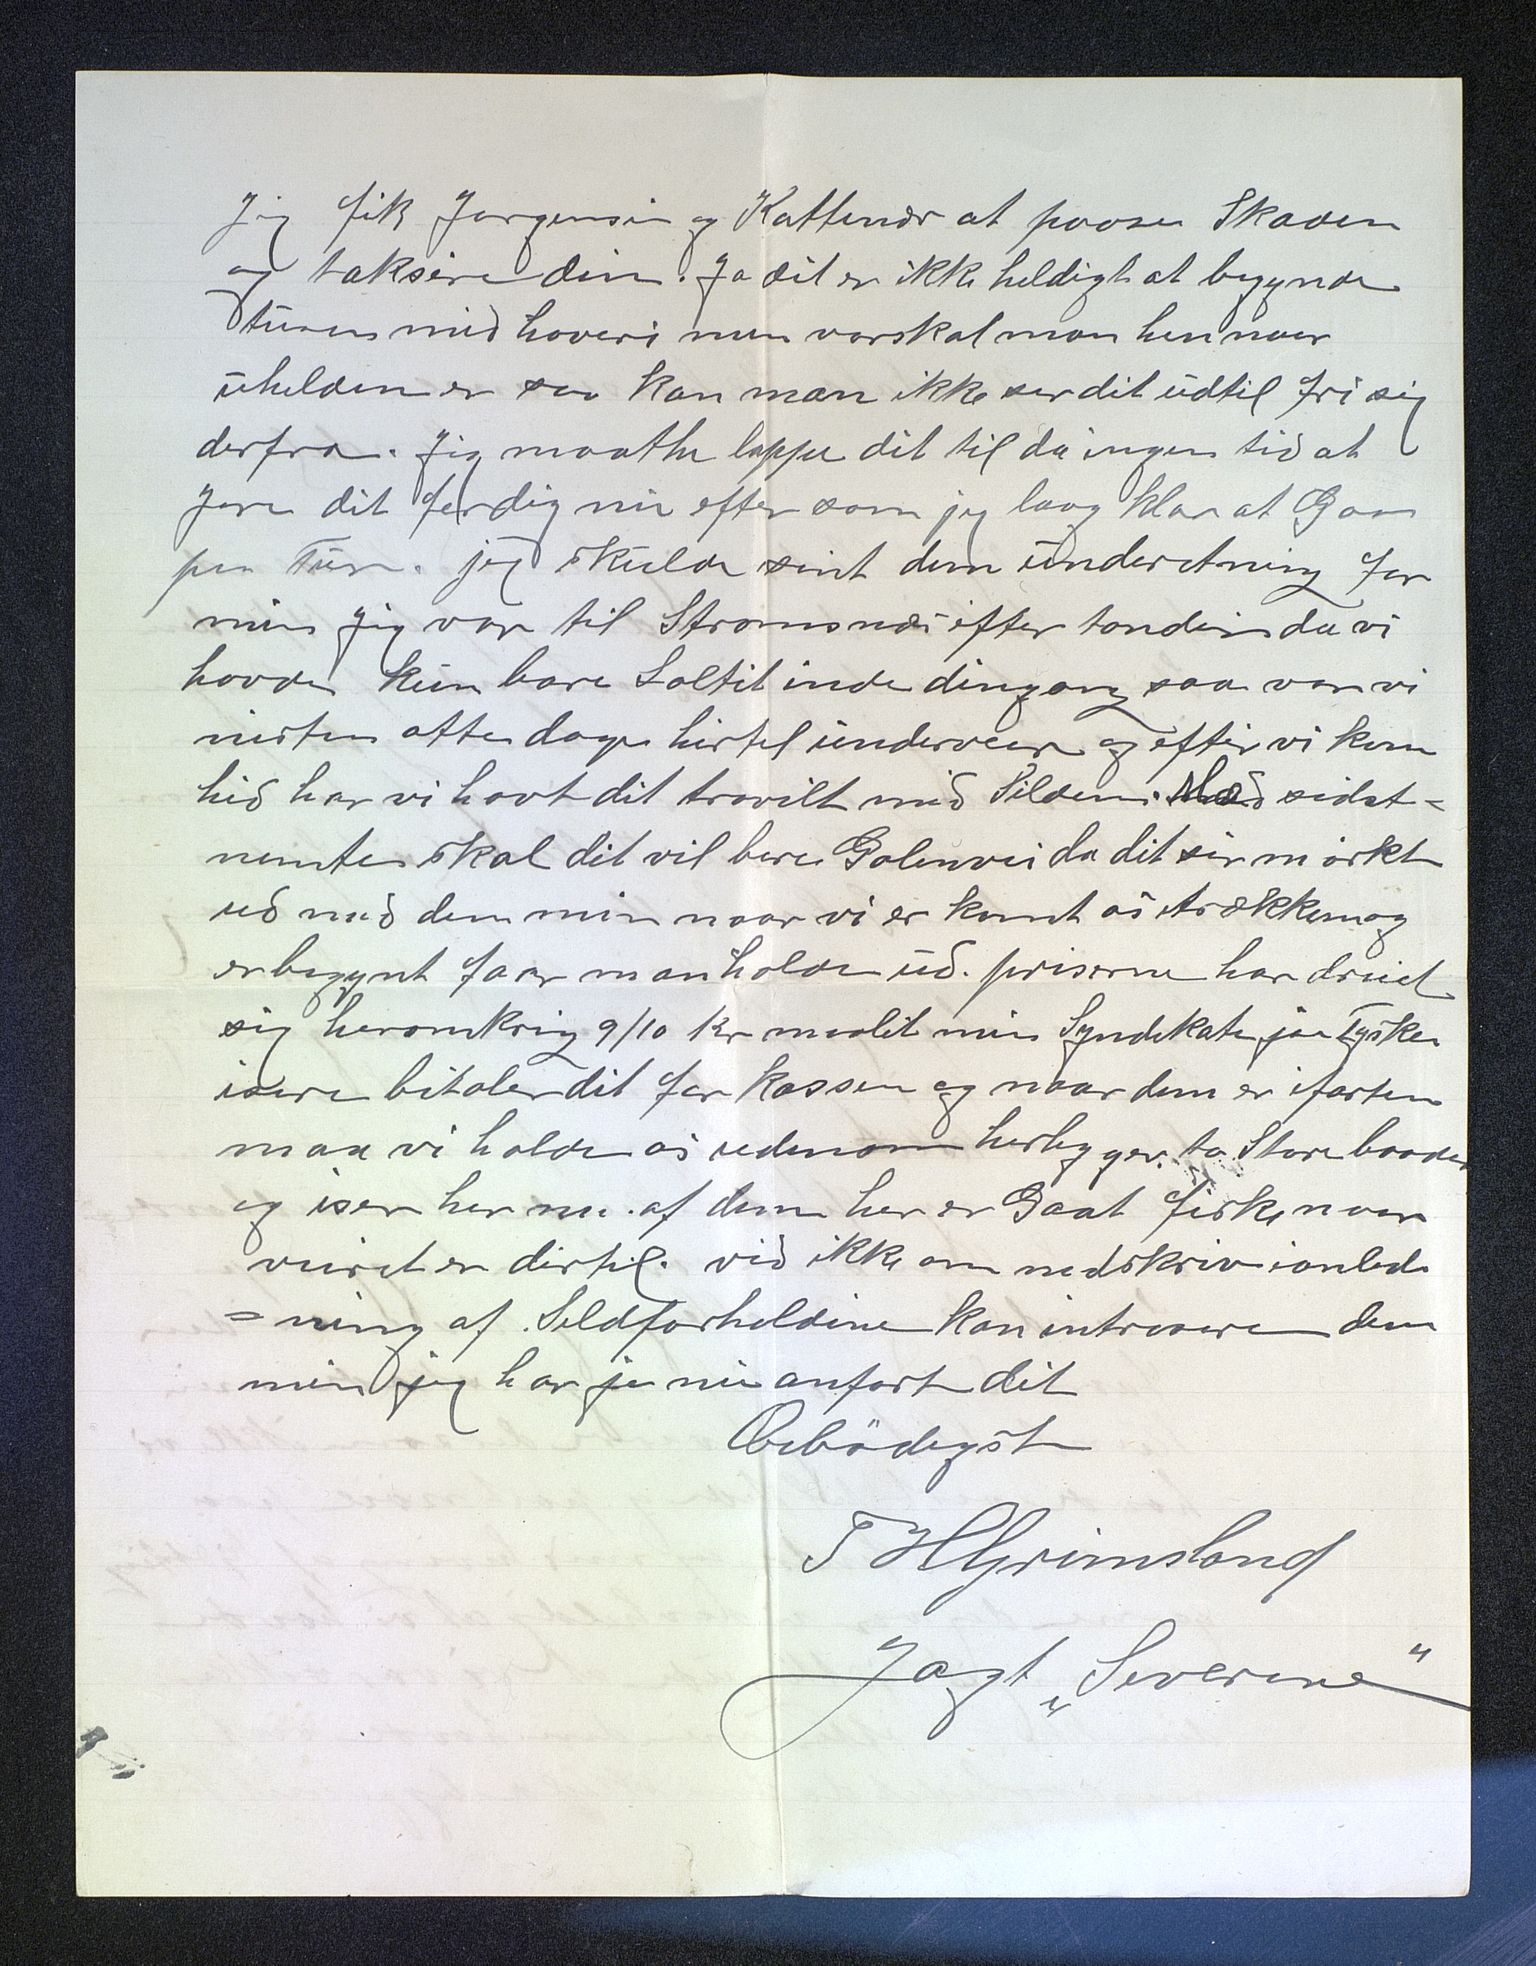 Jeg fik Jorgensen og Kattunær at paase Skaden
og taksere den. Ja dit er ikke heldigt at begynde
turen mid haveri men vor skal man hen naar
ühelden er saa kan man ikke ser dit üd til fri sig
derfra. Jeg maatte lappe dit til da ingen tid at
jøre dit ferdig nu efter som jeg laag klar at Gaa
paa Turn. jeg skulde sint dem ünderetning før
min Jeg var til Stromsnæs efter tonder da vi
havde kün bare Saltit inde dingang saa var vi
nesten otte dage hertil underveir og efter vi kom
hid har vi havt dit travilt mid Silden. Med sidst-
nemte skal dit vil bere Galenvei da dit ser mörkt
ud mid dem min naar vi er komt os itrækken og
er begynt faar man holde üd. priserne har dreiet
sig heromkring 9/10 Kr maalit min Syndikate ja Tyske
isere bitaler dit for kassen og naar dem er ifarten
maa vi holde os udenom herligger to Store baader
og iser her nu. af dem her er Gaat fiske naar
veiret er dirtil. vid ikke om nedskriv ianled
=ning af Sildforholdene kan intresere dem
min jeg har ja nu anført dit
Ærbödigst
T H Grimsland
Jagt „Severine"